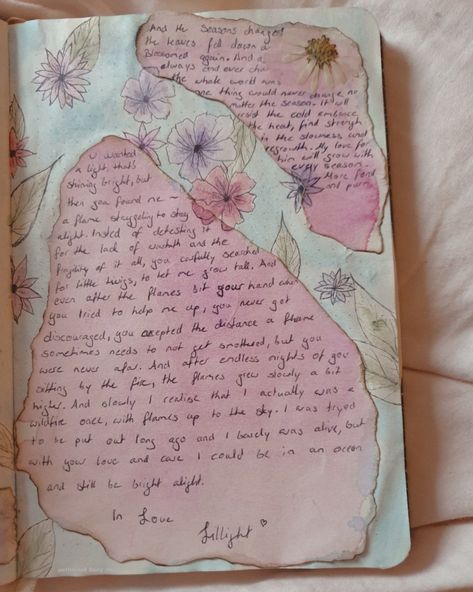 And the seasons changed
the leaves fell down a
Bloomed again. And a
always and ever cha
the whole world was
one thing would never change no
matter the season. It will
the cold embrace
the heat, find strength
in the slowness and
regrowth. My love for
him will grow with
every season.
More fond
and pure
U wanted
a light, that's
shining bright, but
then you found me ~
a flame stuggeling to stay
alight. Instead of detesting it
for the lack of warmth and the
fragility of it all, you carfully searched
for little twigs, to let me grow tall. And
even after the flames bit your hand when
you tried to help me up, you never got
discouraged, you accepted the distance a flame
sometimes needs to not get smothered, but you
were never afar. And after endless nights of you
sitting by the fire, the flames grew slowly a bit
higher. And slowly I realise that I actually was a
wildfire once, with flames up to the sky. I was tryed
to be put out long ago and I barely was alive, but
with your love and care I could be in an ocean
and still be bright alight.
In Love
Lillight